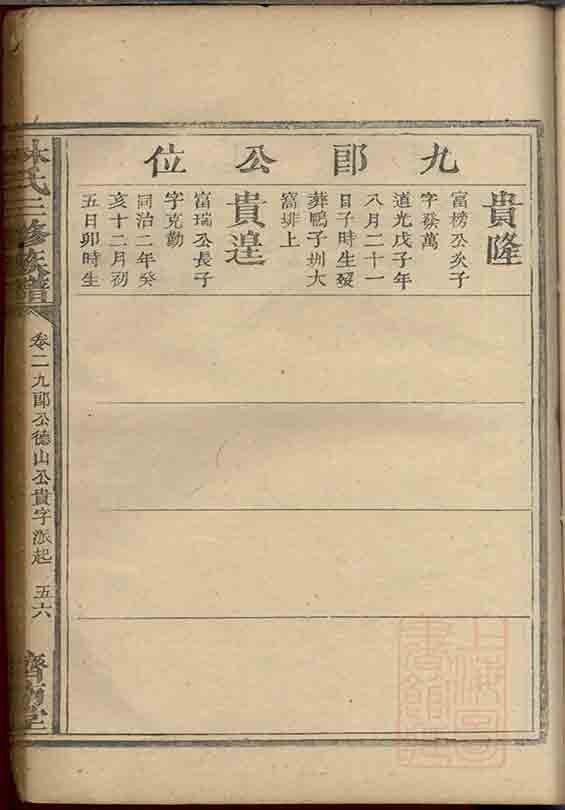 九郎公位
貴隆
富榜公次子
字癸萬
道光戊子年
八月二十一
日子時生發
葬鴨子圳大
窩排上
貴遑
富瑞公長子
字克勤
同治二年癸
亥十二月初
五日卯時生
林氏三修族譜
卷二九郎公德山公貴字派起
五六
濟南堂
上海圖書館藏